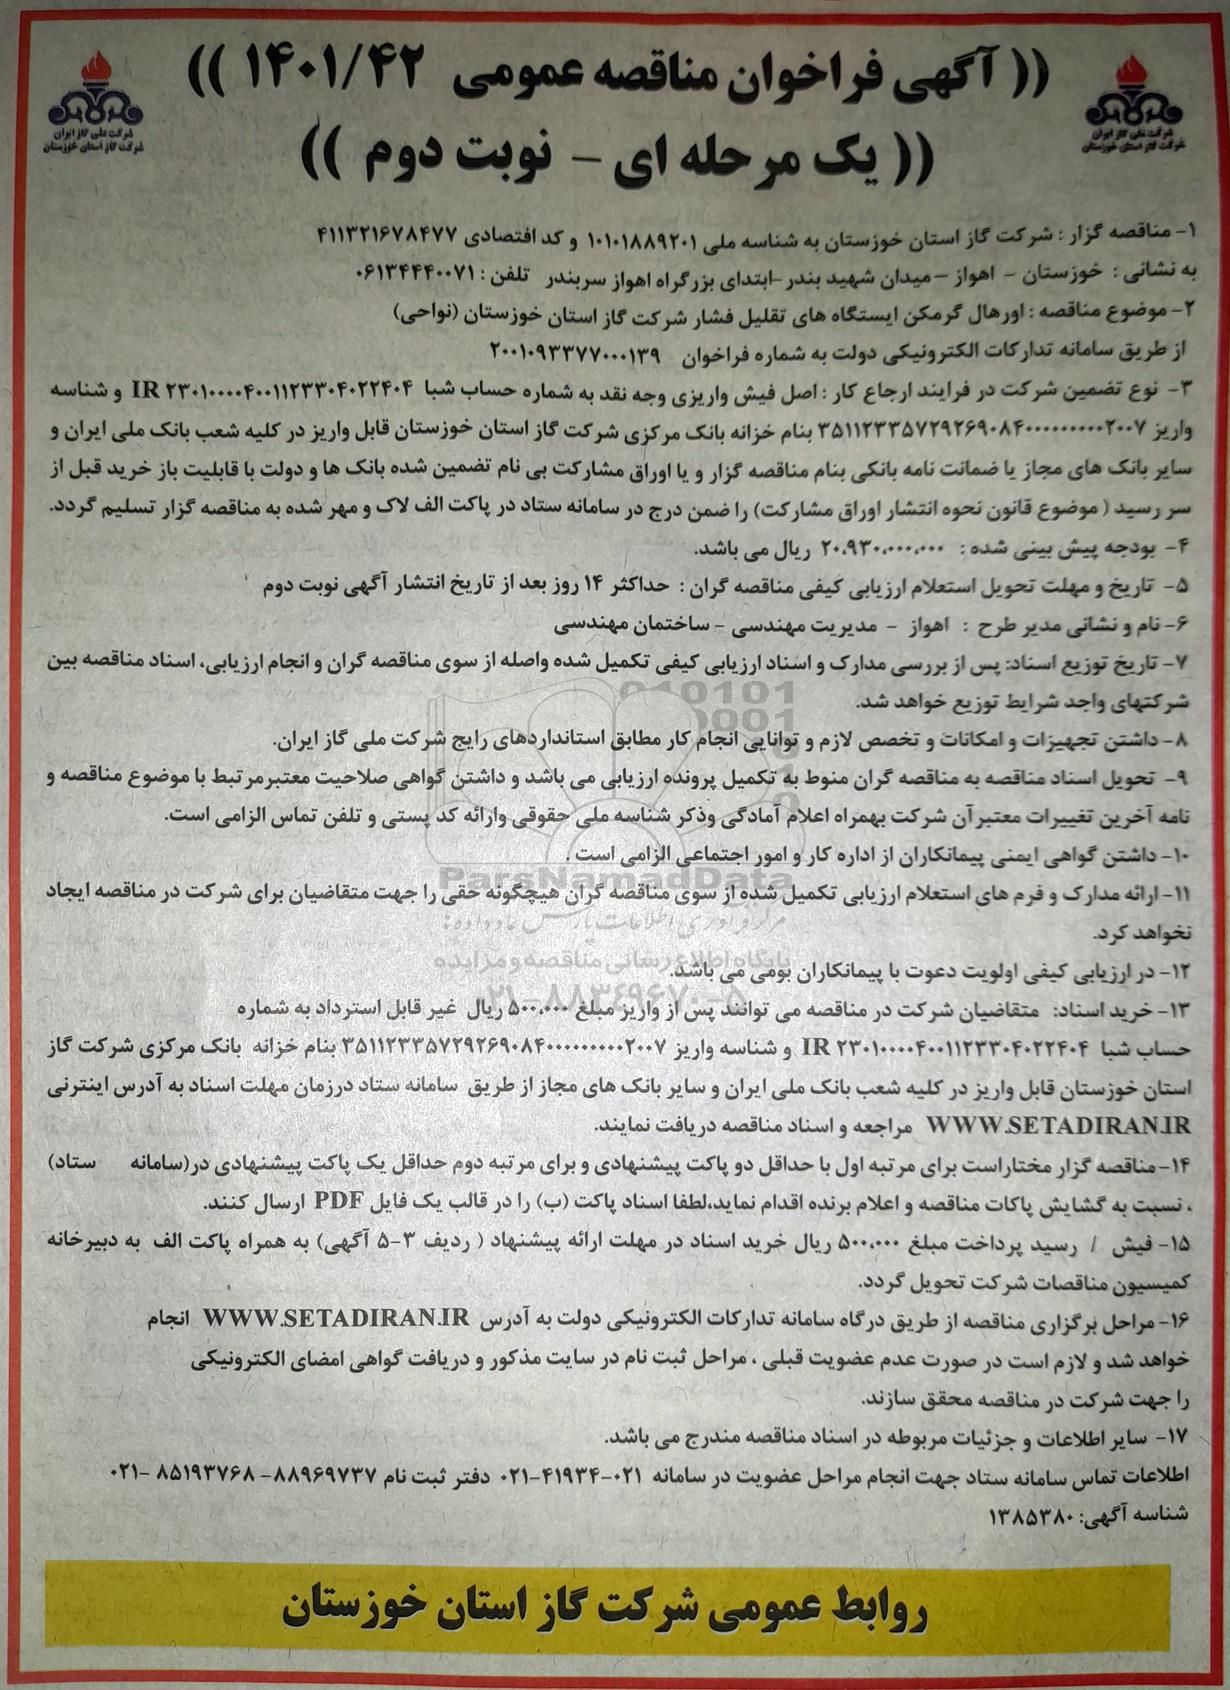 (( آگهی فراخوان مناقصه عمومی ۱۴۰۱/۴۲ ))
(( یک مرحله ای - نوبت دوم ))
شرکت ملی گاز ایران
شرکت گاز استان خوزستان
شرکت ملی گاز ایران
شرکت گاز استان خوزستان
۱- مناقصه گزار : شرکت گاز استان خوزستان به شناسه ملی ۱۰۱۰۱۸۸۹۲۰۱ و کد اقتصادی ۴۱۱۳۲۱۶۷۸۴۷۷
به نشانی : خوزستان - اهواز -میدان شهید بندر -ابتدای بزرگراه اهواز سربندر تلفن : ۰۶۱۳۴۴۴۰۰۷۱
۲- موضوع مناقصه : اورهال گرمکن ایستگاه های تقلیل فشار شرکت گاز استان خوزستان (نواحی)
از طریق سامانه تدارکات الکترونیکی دولت به شماره فراخوان ۲۰۰۱۰۹۳۳۷۷۰۰۰۱۳۹
۳- نوع تضمین شرکت در فرایند ارجاع کار : اصل فیش واریزی وجه نقد به شماره حساب شبا IR ۲۳۰۱۰۰۰۰۴۰۰۱۱۲۳۳۰۴۰۲۲۴۰۴ و شناسه
واریز ۳۵۱۱۲۳۳۵۷۲۹۲۶۹۰۸۴۰۰۰۰۰۰۰۰۰۰۲۰۰۷ بنام خزانه بانک مرکزی شرکت گاز استان خوزستان قابل واریز در کلیه شعب بانک ملی ایران و
سایر بانک های مجاز یا ضمانت نامه بانکی بنام مناقصه گزار و یا اوراق مشارکت بی نام تضمین شده بانک ها و دولت با قابلیت باز خرید قبل از
سر رسید ( موضوع قانون نحوه انتشار اوراق مشارکت) را ضمن درج در سامانه ستاد در پاکت الف لاک و مهر شده به مناقصه گزار تسلیم گردد.
۴- بودجه پیش بینی شده : ۲۰،۹۳۰،۰۰۰،۰۰۰ ریال می باشد.
۵- تاریخ و مهلت تحویل استعلام ارزیابی کیفی مناقصه گران : حداکثر ۱۴ روز بعد از تاریخ انتشار آگهی نوبت دوم
۶- نام و نشانی مدیر طرح : اهواز - مدیریت مهندسی - ساختمان مهندسی
۷- تاریخ توزیع اسناد: پس از بررسی مدارک و اسناد ارزیابی کیفی تکمیل شده واصله از سوی مناقصه گران و انجام ارزیابی، اسناد مناقصه بین
شرکتهای واجد شرایط توزیع خواهد شد.
۸- داشتن تجهیزات و امکانات و تخصص لازم و توانایی انجام کار مطابق استانداردهای رایج شرکت ملی گاز ایران.
۹- تحویل اسناد مناقصه به مناقصه گران منوط به تکمیل پرونده ارزیابی می باشد و داشتن گواهی صلاحیت معتبرمرتبط با موضوع مناقصه و
نامه آخرین تغییرات معتبرآن شرکت بهمراه اعلام آمادگی وذکر شناسه ملی حقوقی وارائه کد پستی و تلفن تماس الزامی است.
۱۰- داشتن گواهی ایمنی پیمانکاران از اداره کار و امور اجتماعی الزامی است .
۱۱- ارائه مدارک و فرم های استعلام ارزیابی تکمیل شده از سوی مناقصه گران هیچگونه حقی را جهت متقاضیان برای شرکت در مناقصه ایجاد
نخواهد کرد.
۱۲- در ارزیابی کیفی اولویت دعوت با پیمانکاران بومی می باشد.
۱۳- خرید اسناد: متقاضیان شرکت در مناقصه می توانند پس از واریز مبلغ ۵۰۰،۰۰۰ ریال غیر قابل استرداد به شماره
حساب شبا IR ۲۳۰۱۰۰۰۰۴۰۰۱۱۲۳۳۰۴۰۲۲۴۰۴ و شناسه واریز ۳۵۱۱۲۳۳۵۷۲۹۲۶۹۰۸۴۰۰۰۰۰۰۰۰۰۰۲۰۰۷ بنام خزانه بانک مرکزی شرکت گاز
استان خوزستان قابل واریز در کلیه شعب بانک ملی ایران و سایر بانک های مجاز از طریق سامانه ستاد درزمان مهلت اسناد به آدرس اینترنی
WWW.SETADIRAN.IR مراجعه و اسناد مناقصه دریافت نمایند.
۱۴-مناقصه گزار مختاراست برای مرتبه اول با حداقل دو پاکت پیشنهادی و برای مرتبه دوم حداقل یک پاکت پیشنهادی در(سامانه ستاد)
، نسبت به گشایش پاکات مناقصه و اعلام برنده اقدام نماید،لطفا اسناد پاکت (ب) را در قالب یک فایل PDF ارسال کنند.
۱۵- فیش / رسید پرداخت مبلغ ۵۰۰،۰۰۰ ریال خرید اسناد در مهلت ارائه پیشنهاد ( ردیف ۳-۵ آگهی) به همراه پاکت الف به دبیرخانه
کمیسیون مناقصات شرکت تحویل گردد.
۱۶- مراحل برگزاری مناقصه از طریق درگاه سامانه تدارکات الکترونیکی دولت به آدرس WWW.SETADIRAN.IR انجام
خواهد شد و لازم است در صورت عدم عضویت قبلی ، مراحل ثبت نام در سایت مذکور و دریافت گواهی امضای الکترونیکی
را جهت شرکت در مناقصه محقق سازند.
۱۷- سایر اطلاعات و جزئیات مربوطه در اسناد مناقصه مندرج می باشد.
اطلاعات تماس سامانه ستاد جهت انجام مراحل عضویت در سامانه ۰۲۱-۴۱۹۳۴-۰۲۱ دفتر ثبت نام ۸۸۹۶۹۷۳۷- ۸۵۱۹۳۷۶۸ -۰۲۱
شناسه آگهی: ۱۳۸۵۳۸۰
روابط عمومی شرکت گاز استان خوزستان
ParsNamadData
پایگاه اطلاع رسانی مناقصه و مزایده
۰۲۱-۸۸۳۴۹۶۷۰-۵